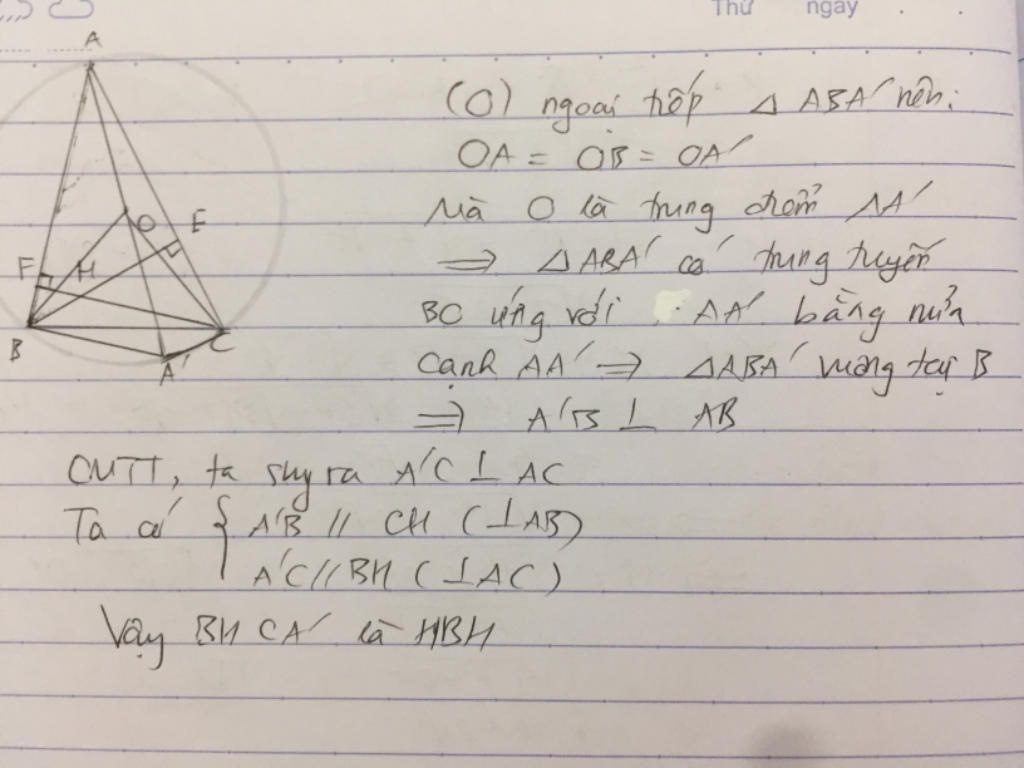 Thứ ngày . .
A
O
E
F
H
B
C
A'
(O) ngoại tiếp Δ ABA' nên:
OA = OB = OA'
Mà O là trung điểm AA'
⇒ Δ ABA' có trung tuyến
BO ứng với AA' bằng nửa
cạnh AA' ⇒ ΔABA' vuông tại B
⇒ A'B ⊥ AB
CMTT, ta suy ra A'C ⊥ AC
Ta có { A'B // CH (⊥AB)
A'C // BH (⊥AC)
Vậy BHCA' là HBH